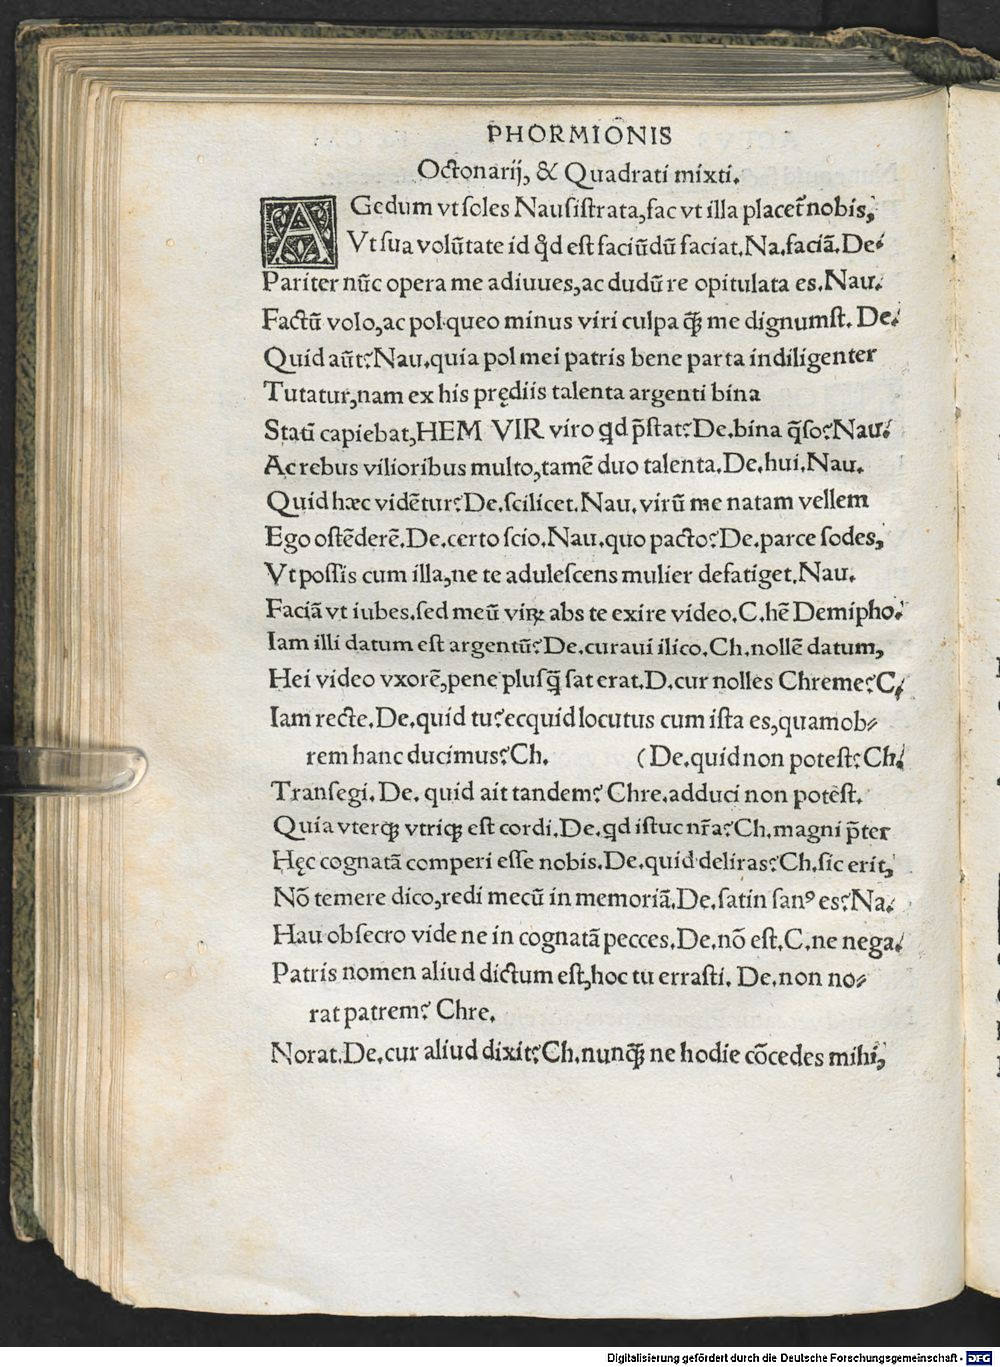 PHORMIONIS
Octonarij, & Quadrati mixti.
AGedum vt ſoles Nauſiſtrata, fac vt illa placet̃ nobis,
Vt ſua volũtate id q̊d eſt faciũdũ faciat. Na. faciã. De.
Pariter nũc opera me adiuues, ac dudũ re opitulata es. Nau.
Factũ volo, ac pol queo minus viri culpa q̃ꝫ me dignumſt. De.
Quid aũt? Nau. quia pol mei patris bene parta indiligenter
Tutatur, nam ex his prędiis talenta argenti bina
Statĩ capiebat, HEM VIR viro qd p̃ſtat? De. bina q̃ſo? Nau.
Ac rebus vilioribus multo, tamẽ duo talenta. De. hui. Nau.
Quid hæc vidẽtur? De. ſcilicet. Nau. virũ me natam vellem
Ego oſtẽderẽ. De. certo ſcio. Nau. quo pacto? De. parce ſodes,
Vt poſſis cum illa, ne te aduleſcens mulier defatiget. Nau.
Faciã vt iubes. ſed meũ viꝝ abs te exire video. C. hẽ Demipho.
Iam illi datum eſt argentũ? De. curaui ilico. Ch. nollẽ datum,
Hei video vxorẽ, pene pluſq̃ꝫ ſat erat. D. cur nolles Chreme? C.
Iam recte. De. quid tu? ecquid locutus cum iſta es, quamob⸗
rem hanc ducimus? Ch. (De. quid non poteſt? Ch.
Tranſegi. De. quid ait tandem? Chre. adduci non poteſt.
Quia vterqꝫ vtriqꝫ eſt cordi. De. qd iſtuc nr̃a? Ch. magni p̃ter
Hęc cognatã comperi eſſe nobis. De. quid deliras? Ch. ſic erit,
Nõ temere dico, redi mecũ in memoriã. De. ſatin ſanꝰ es? Na.
Hau obſecro vide ne in cognatã pecces. De. nõ eſt. C. ne nega.
Patris nomen aliud dictum eſt, hoc tu erraſti. De. non no⸗
rat patrem? Chre.
Norat. De. cur aliud dixit? Ch. nunq̃ꝫ ne hodie cõcedes mihi,
Digitalisierung gefördert durch die Deutsche Forschungsgemeinschaft - DFG